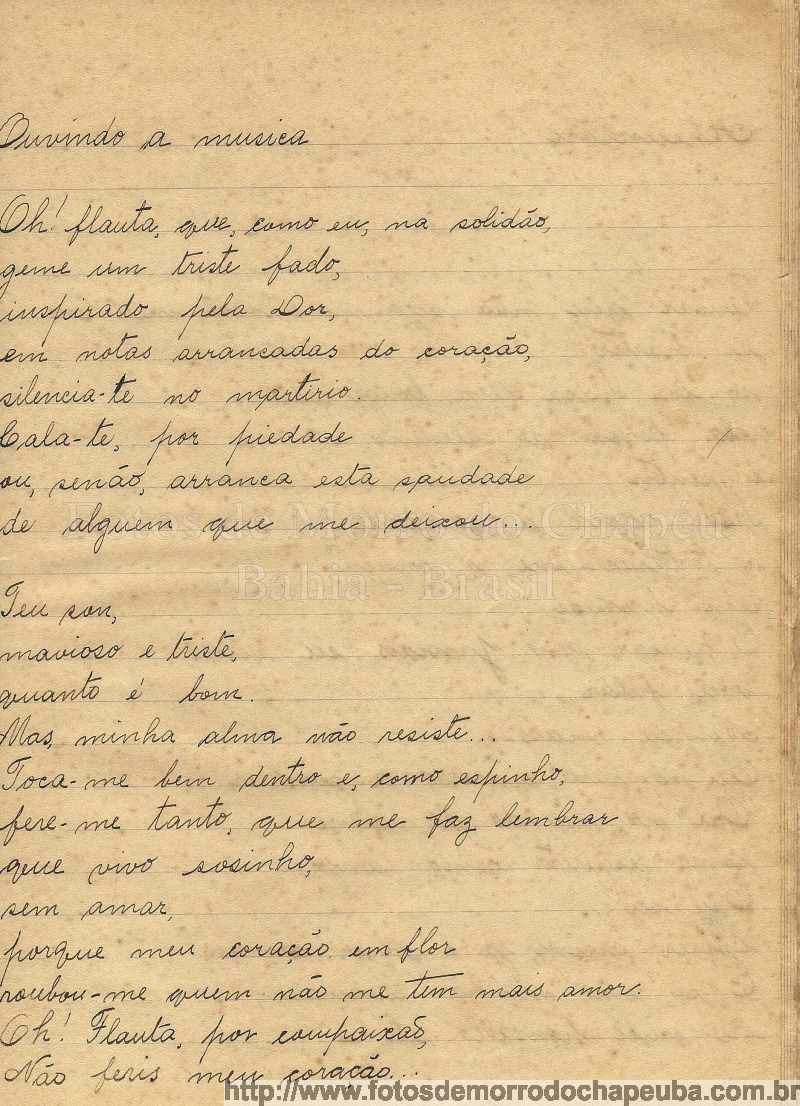 Ouvindo a musica
Oh! flauta, que, como eu, na solidão,
geme um triste fado,
inspirado pela Dor,
em notas arrancadas do coração,
silencia-te no martirio.
Cala-te, por piedade
ou, senão, arranca esta saudade
de alguem que me deixou...
Fotos de Morro do Chapéu
Bahia - Brasil
Teu son,
mavioso e triste,
quanto é bom.
Mas, minha alma não resiste...
Toca-me bem dentro e, como espinho,
fere-me tanto, que me faz lembrar
que vivo sosinho,
sem amar,
porque meu coração em flor
roubou-me quem não me tem mais amor.
Oh! Flauta, por compaixão,
Não feris meu coração...
http://www.fotosdemorrodochapeuba.com.br